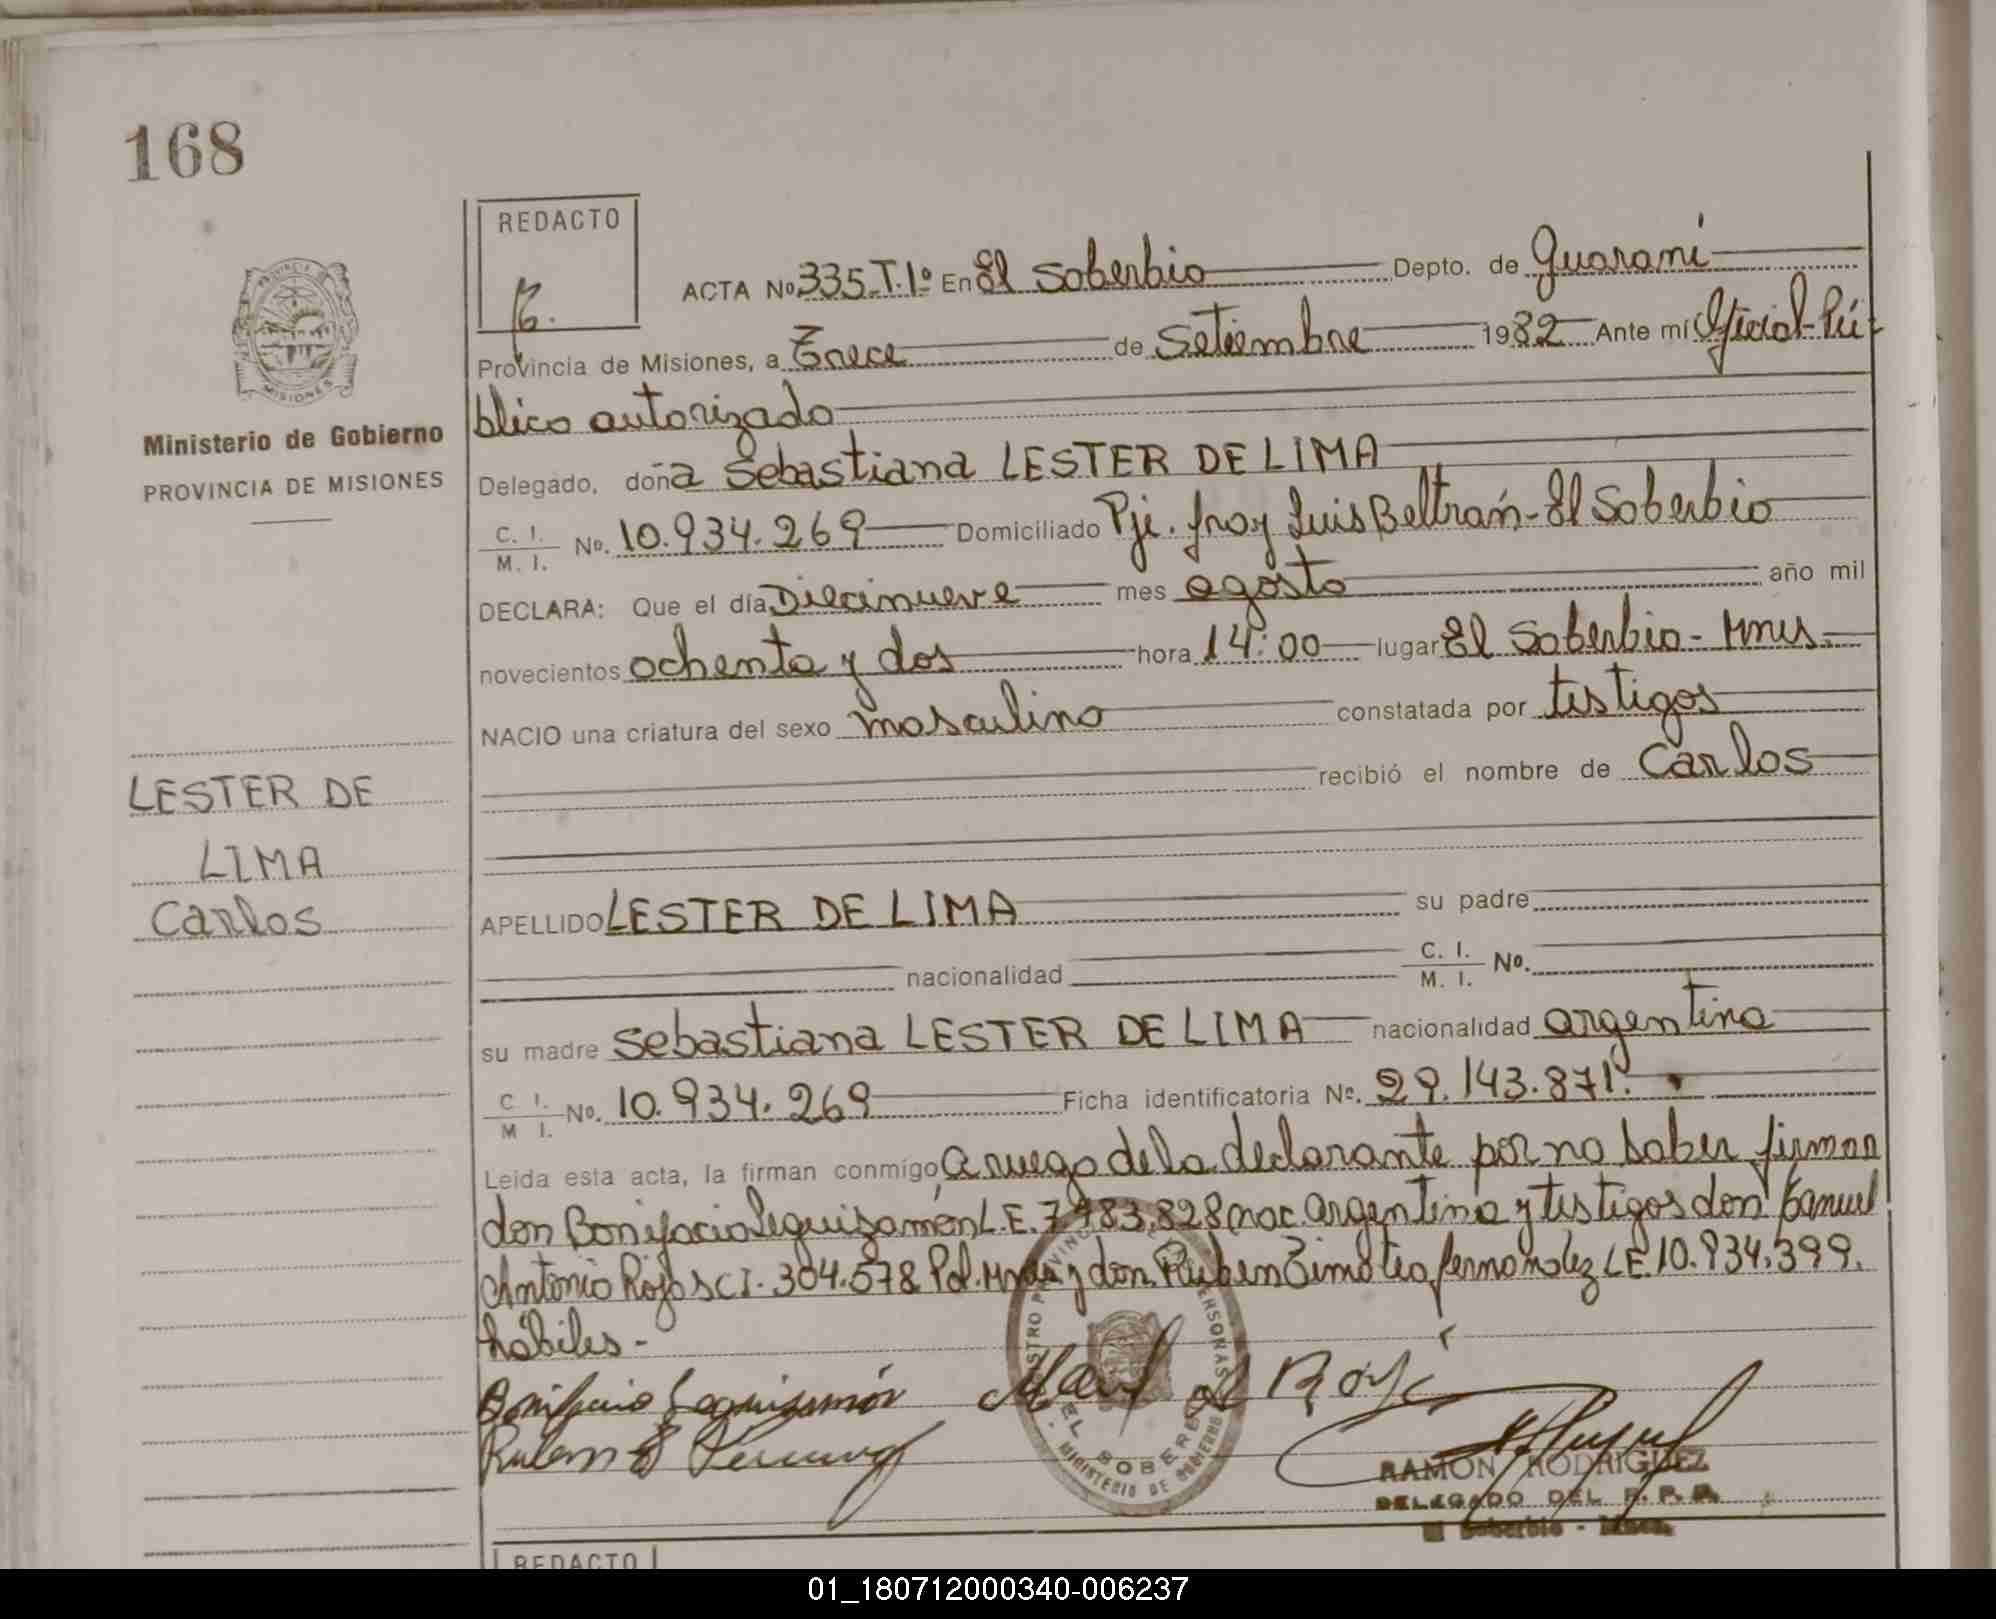 168
REDACTO
ACTA No 335 T.1º En El Soberbio Depto. de Guaraní
Provincia de Misiones, a Trece de Setiembre 1982 Ante mí Oficial Pú-
blico autorizado
Ministerio de Gobierno
PROVINCIA DE MISIONES
Delegado, doña Sebastiana LESTER DE LIMA
C. I. M. I. No. 10.934.269 Domiciliado Pje. fray Luis Beltrán - El Soberbio
DECLARA: Que el día Diecinueve mes agosto año mil
novecientos ochenta y dos hora 14:00 lugar El Soberbio - Mnes.
NACIO una criatura del sexo masculino constatada por testigos
recibió el nombre de Carlos
LESTER DE
LIMA
Carlos
APELLIDO LESTER DE LIMA su padre
nacionalidad C. I. M. I. No.
su madre Sebastiana LESTER DE LIMA nacionalidad argentina
C. I. M. I. No. 10.934.269 Ficha identificatoria No. 29.143.871.
Leida esta acta, la firman conmigo, a ruego de la declarante por no saber firmar
don Bonifacio Leguizamón L.E. 7.483.828 nac. argentina y testigos don Manuel
Antonio Rojas C.I. 304.578 Pol. Mnes y don Ruben Timoteo fernandez L.E. 10.934.399.
hábiles -
Bonifacio Leguizamón
EL SOBERBIO
MINISTERIO DE GOBIERNO
RAMON RODRIGUEZ
DELEGADO DEL R. P. P.
El Soberbio - Mnes.
REDACTO
01_180712000340-006237